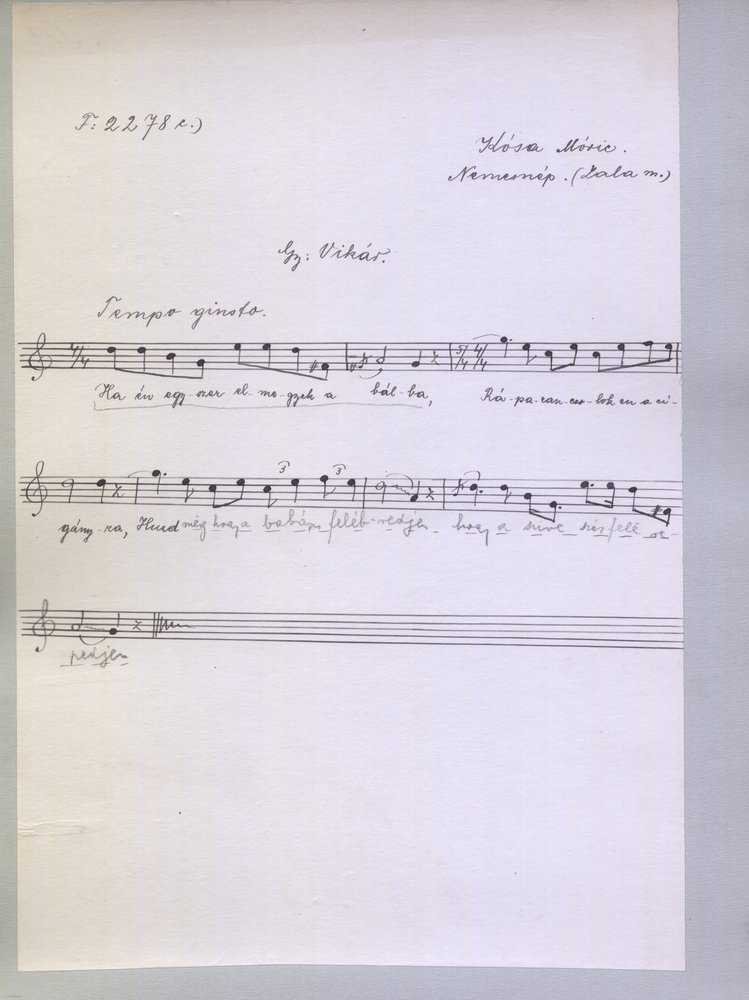 F: 2278 c.)
Kósa Móric.
Nemesnép. (Zala m.)
Gy: Vikár.
Tempo giusto.
4/4 5/4 4/4
Ha én egy-szer el-me-gyek a bál-ba, Rá-pa-ran-cso-lok én a ci-
3 3
gány-ra, Huzd még hogy a babám feléb-redjen hogy a szive
pedjen